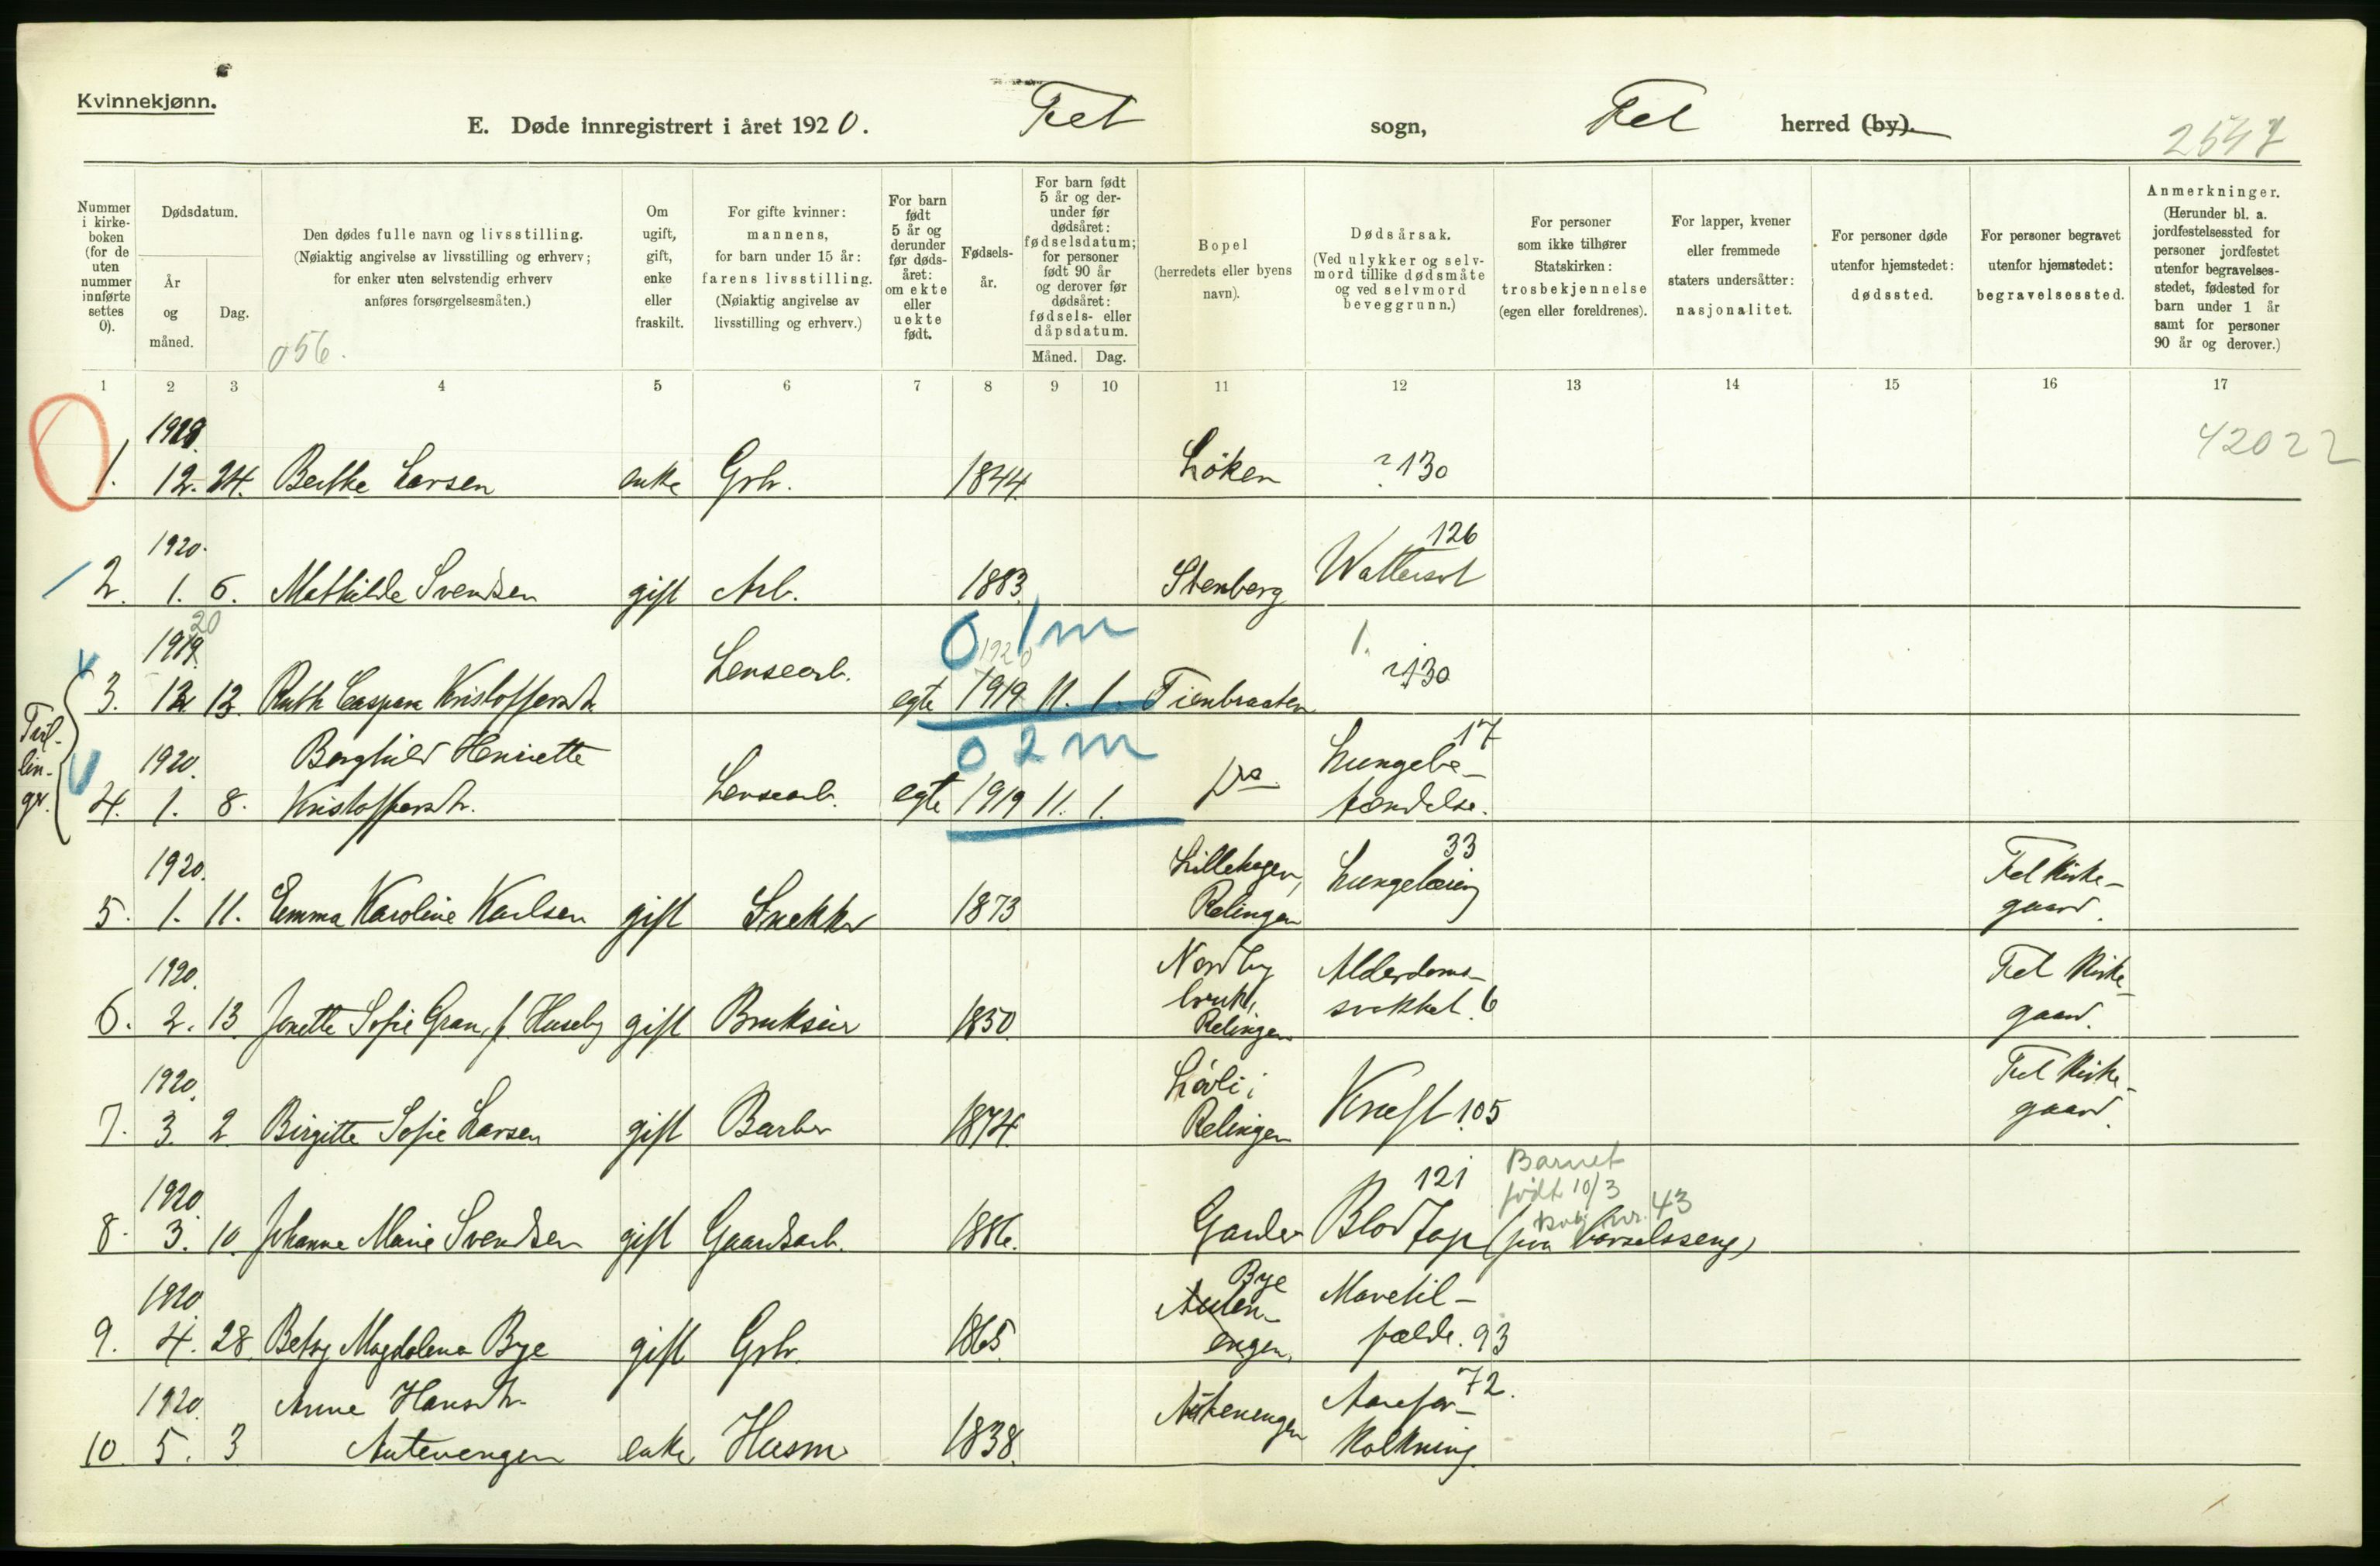 Kvinnekjønn.
E. Døde innregistrert i året 1920. Fet sogn, Fet herred (by).
2547
Nummer i kirke-boken (for de uten nummer innførte settes 0).
Dødsdatum.
År og måned.
Dag.
Den dødes fulle navn og livsstilling.
(Nøiaktig angivelse av livsstilling og erhverv;
for enker uten selvstendig erhverv
anføres forsørgelsesmåten.)
056.
Om ugift, gift, enke eller fraskilt.
For gifte kvinner: mannens, for barn under 15 år: farens livsstilling. (Nøiaktig angivelse av livsstilling og erhverv.)
For barn født 5 år og derunder før døds-året: om ekte eller uekte født.
Fødsels-år.
For barn født 5 år og der-under før dødsåret: fødselsdatum; for personer født 90 år og derover før dødsåret: fødsels- eller dåpsdatum.
Måned. Dag.
Bopel (herredets eller byens navn).
Dødsårsak. (Ved ulykker og selv-mord tillike dødsmåte og ved selvmord beveggrunn.)
For personer som ikke tilhører Statskirken: trosbekjennelse (egen eller foreldrenes).
For lapper, kvener eller fremmede staters undersåtter: nasjonalitet.
For personer døde utenfor hjemstedet: dødssted.
For personer begravet utenfor hjemstedet: begravelsessted.
Anmerkninger. (Herunder bl. a. jordfestelsessted for personer jordfestet utenfor begravelses-stedet, fødested for barn under 1 år samt for personer 90 år og derover.)
1 2 3 4 5 6 7 8 9 10 11 12 13 14 15 16 17
42022
1. 12. 24. Berthe Larsen enke Grbr. 1844. Løken ? 130
1920.
2. 1. 6. Mathilde Svendsen gift Arb. 1883. Stenberg Wattersot 126
Tril-
lin-
ger.
20
1919.
0 1 m
1920
3. 12 13. Ruth Caspara Kristoffersdtr. Lensearb. egte 1919 11. 1. Tienbraaten 1. ? 130
0 2 m
1920. Borghild Henriette
4. 1. 8. Kristoffersdtr. Lensearb. egte 1919 11. 1. Do Lungebe-
tændelse. 17
1920.
5. 1. 11. Emma Karoline Karlsen gift Snekker 1873 Lillehagen,
Relingen Lungetæring 33 Fet Kirke-
gaard.
1920.
6. 2. 13 Josette Sofie Gran, f. Huseby gift Brukseier 1850. Nordby
bruk,
Relingen Alderdoms-
svekket. 6 Fet Kirke-
gaard.
1920.
7. 3. 2 Birgitte Sofie Larsen gift Barber 1874. Løvli i
Relingen Kræft 105 Fet Kirke-
gaard.
1920.
8. 3. 10. Johanne Marie Svendsen gift Gaardsarb. 1886. Garder Blodtap 121 (paa barselseng)
Barnet
født 10/3
nr. 43
1920.
9. 4. 28. Betsy Magdalena Bye gift Grbr. 1865. Bye
engen. Mavetil-
fælde. 93
1920. Anne Hansdtr.
10. 5. 3 Autenengen enke Husm. 1838. Autenengen Aarefor-
kalkning. 72.